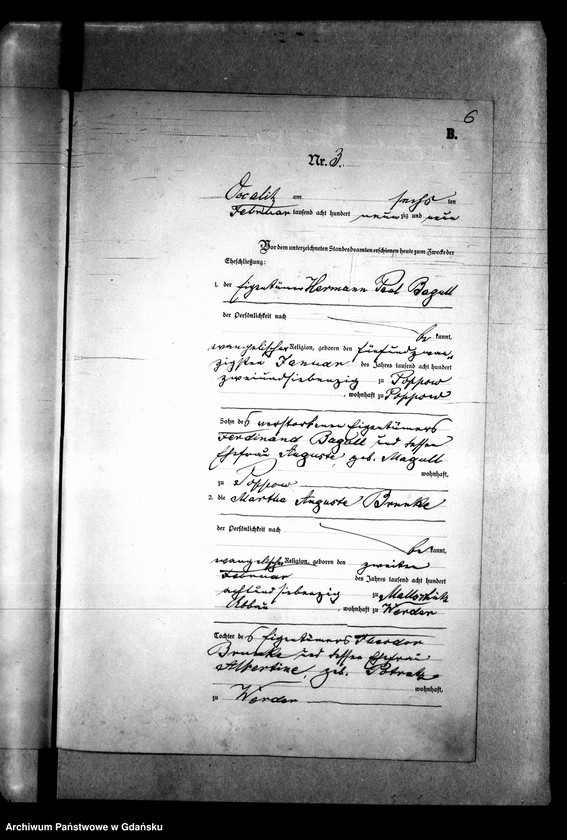 6
B.
Nr. 3.
Occalitz am sechs ten
Februar tausend acht hundert neunzig und neun
Vor dem unterzeichneten Standesbeamten erschienen heute zum Zwecke der
Eheschließung:
1. der Eigentümer Hermann Paul Bagull
der Persönlichkeit nach
be kannt,
evangelischer Religion, geboren den fünfundzwan-
zigsten Januar des Jahres tausend acht hundert
zweiundsiebenzig zu Poppow
, wohnhaft zu Poppow
Sohn des verstorbenen Eigentümers
Ferdinand Bagull und dessen
Ehefrau Auguste, geb. Magull
wohnhaft,
zu Poppow
2. die Martha Auguste Brunke
der Persönlichkeit nach
be kannt,
evangelischer Religion, geboren den zweiten
Februar des Jahres tausend acht hundert
achtundsiebenzig zu
Abbau , wohnhaft zu Werder
Tochter des Eigentümers Theodor
Brunke und dessen Ehefrau
Albertine, geb. Potratz
wohnhaft,
zu Werder
Archiwum Państwowe w Gdańsku